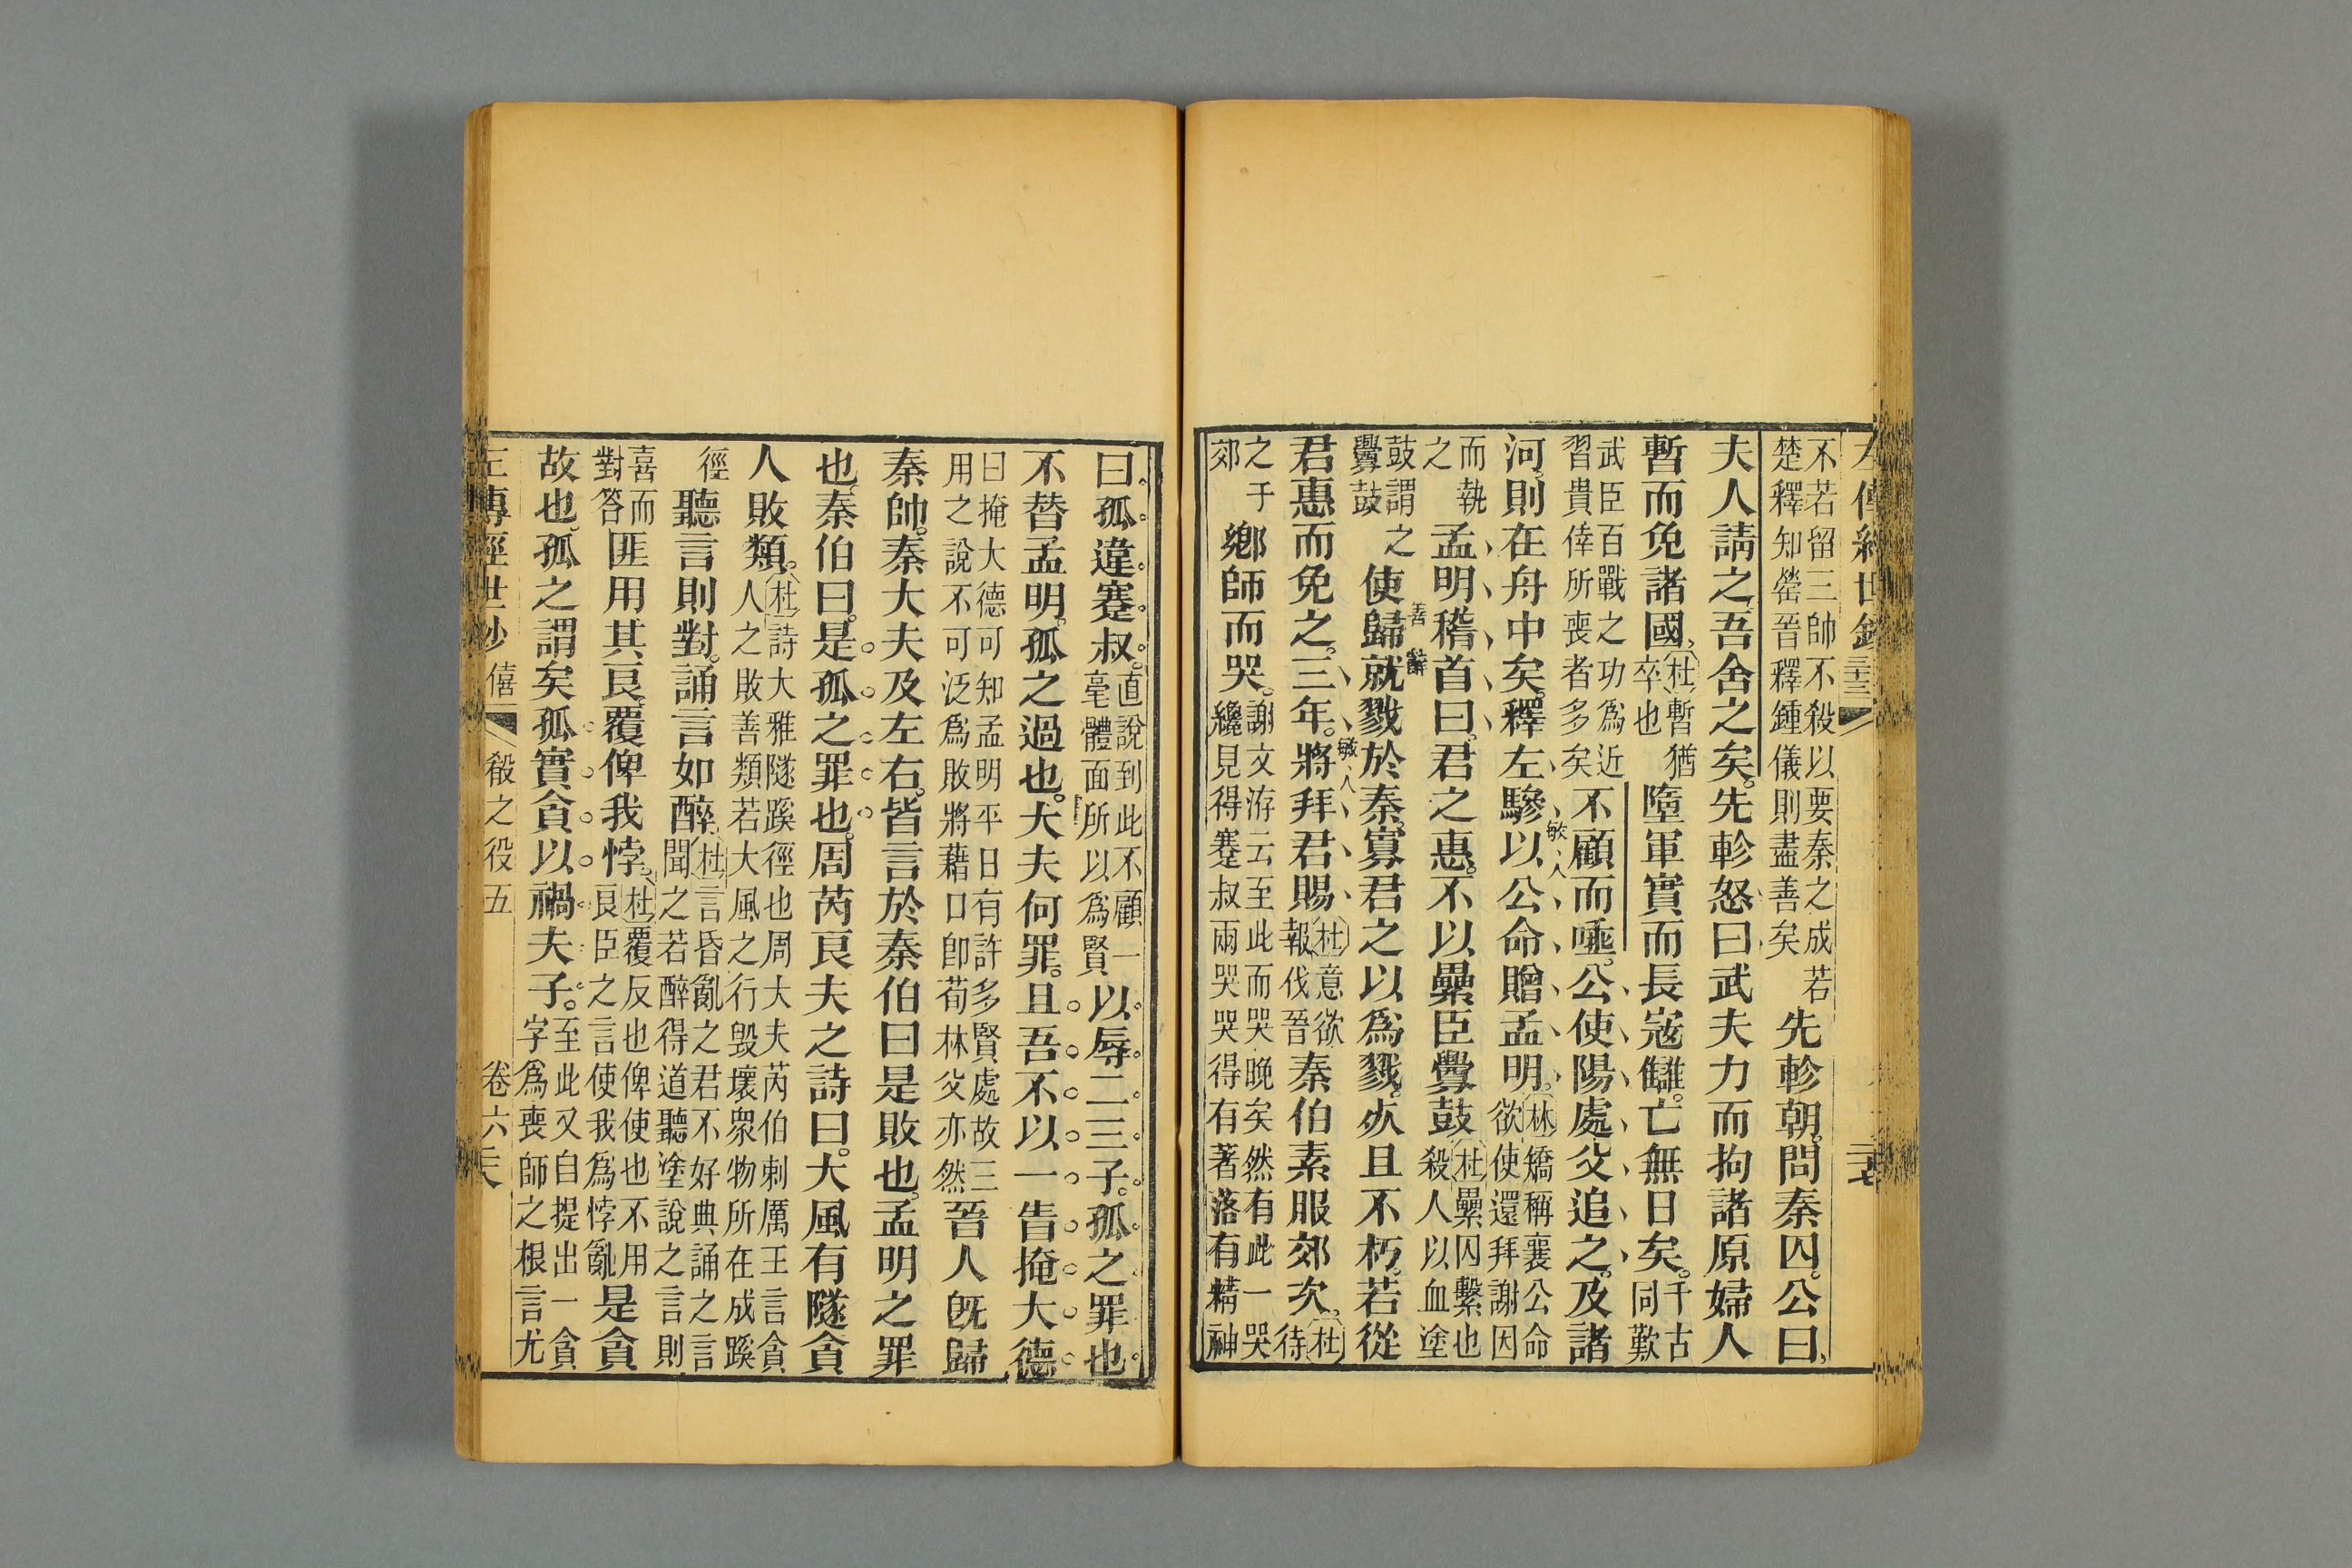 左傳經世鈔
不若留三帥不殺以要秦之成若楚釋知罃晉釋鍾儀則盡善矣先軫朝問秦囚公曰
夫人請之吾舍之矣。先軫怒曰武夫力而拘諸原婦人
暫而免諸國杜暫猶卒也墮軍實而長寇讎。亡無日矣。千古同歎
武臣百戰之功為近習貴倖所喪者多矣不顧而唾。公使陽處父追之。及諸
河。則在舟中矣。釋左驂以公命贈孟明。林矯稱襄公命欲使還拜謝因
而執之孟明稽首曰君之惠。不以纍臣釁鼓杜纍囚繫也殺人以血塗
鼓謂之釁鼓使歸就戮於秦寡君之以爲戮。死且不朽。若從
君惠而免之。三年。將拜君賜杜意欲報伐晉秦伯素服郊次。杜待
之于郊鄉師而哭。謝文洊云至此而哭晚矣然有此一哭纔見得蹇叔兩哭哭得有著落有精神
曰。孤違蹇叔。直說到此不顧一毫體面所以爲賢以辱二三子。孤之罪也
不替孟明。孤之過也。大夫何罪。且吾不以一眚掩大德
曰掩大德可知孟明平日有許多賢處故三用之說不可泛爲敗將藉口卽荀林父亦然晉人既歸
秦帥。秦大夫及左右。皆言於秦伯曰是敗也。孟明之罪
也。秦伯曰。是孤之罪也。周芮良夫之詩曰。大風有隧貪
人敗類。杜詩大雅隧蹊徑也周大夫芮伯刺厲王言貪人之敗善類若大風之行毀壞衆物所在成蹊
徑聽言則對。誦言如醉杜言昏亂之君不好典誦之言聞之若醉得道聽塗說之言則
喜而對答匪用其良覆俾我悖。杜覆反也俾使也不用良臣之言使我爲悖亂是貪
故也。孤之謂矣孤實貪以禍夫子。至此又自提出一貪字爲喪師之根言尤
左傳經世鈔 僖 殽之役五 卷六